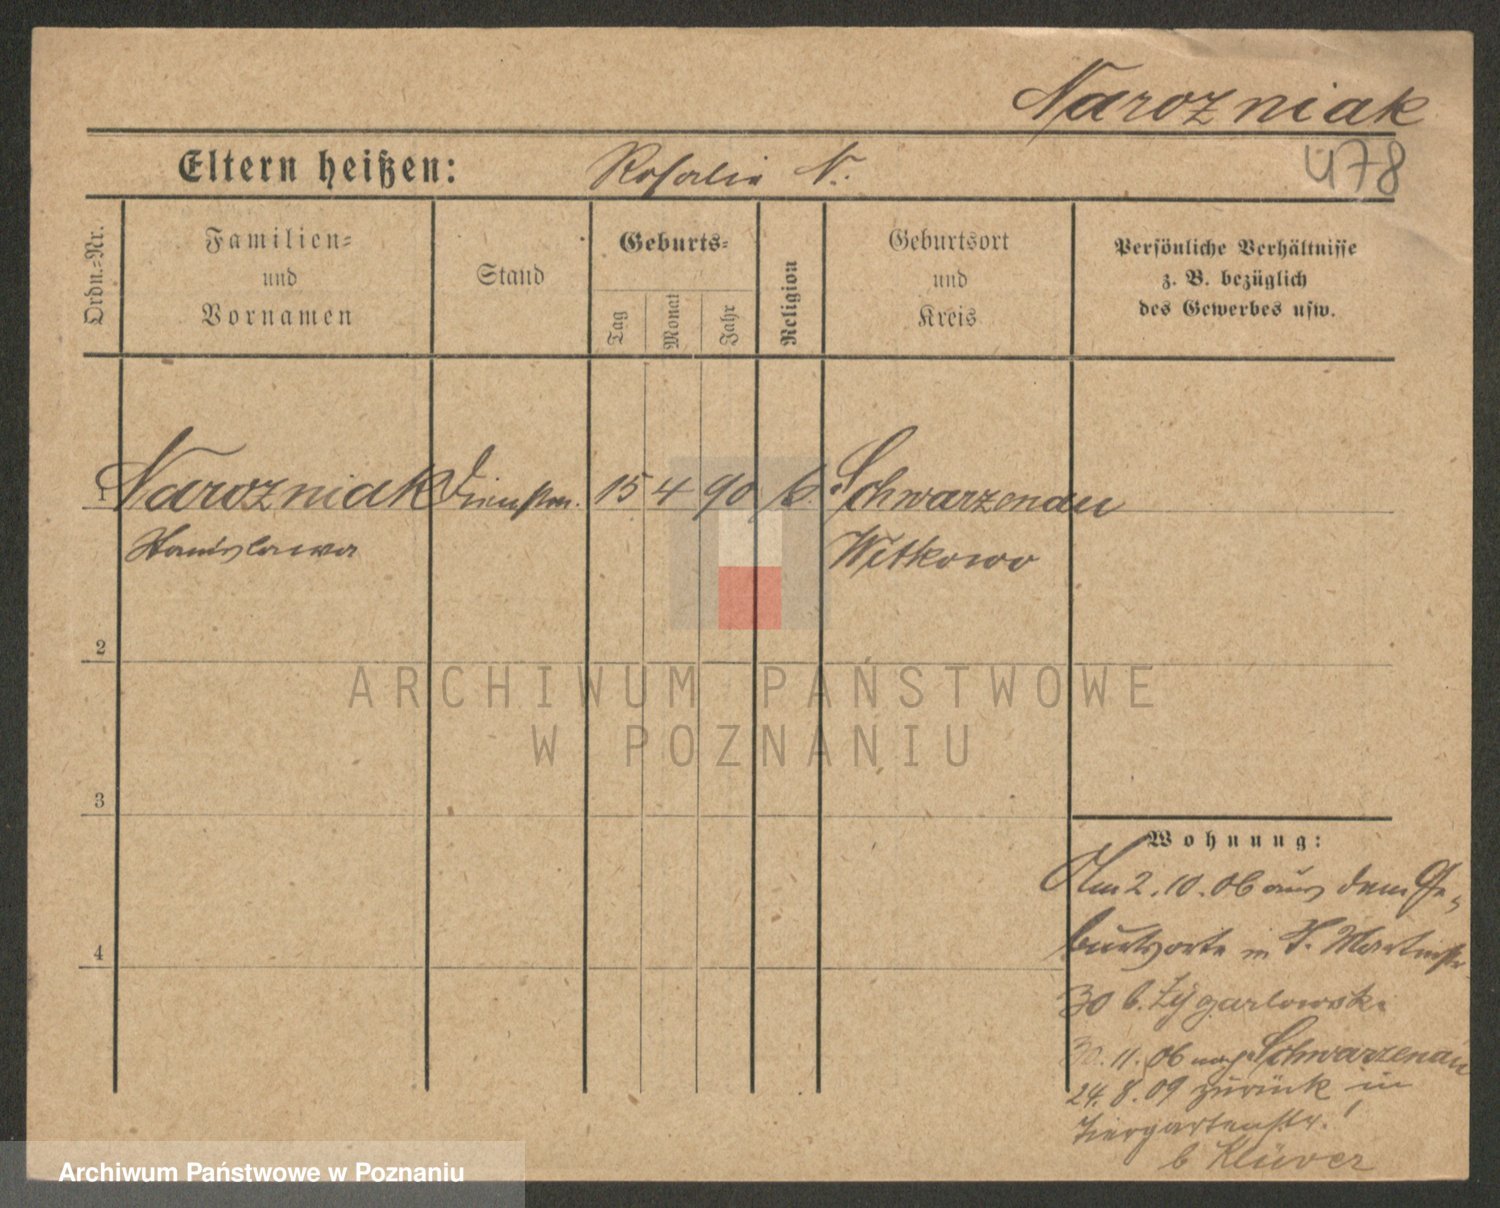 Narozniak
478
Eltern heißen: Rosalie N.
Ordn.-Nr.
Familien-
und
Vornamen
Stand
Geburts-
Tag
Monat
Jahr
Religion
Geburtsort
und
Kreis
Persönliche Verhältnisse
z. B. bezüglich
des Gewerbes usw.
1 Narozniak Dienstm. 15 4 90 k. Schwarzenau
Stanislawa Witkowo
2
ARCHIWUM PAŃSTWOWE
W POZNANIU
3
Wohnung:
Am 2.10.06 aus dem Ge-
burtsorte in S. Martinstr
30 b. Zygarlowski
30.11.06 nach Schwarzenau
24.8.09 zurück in
Tiergartenstr. 1
b Klüver
4
Archiwum Państwowe w Poznaniu